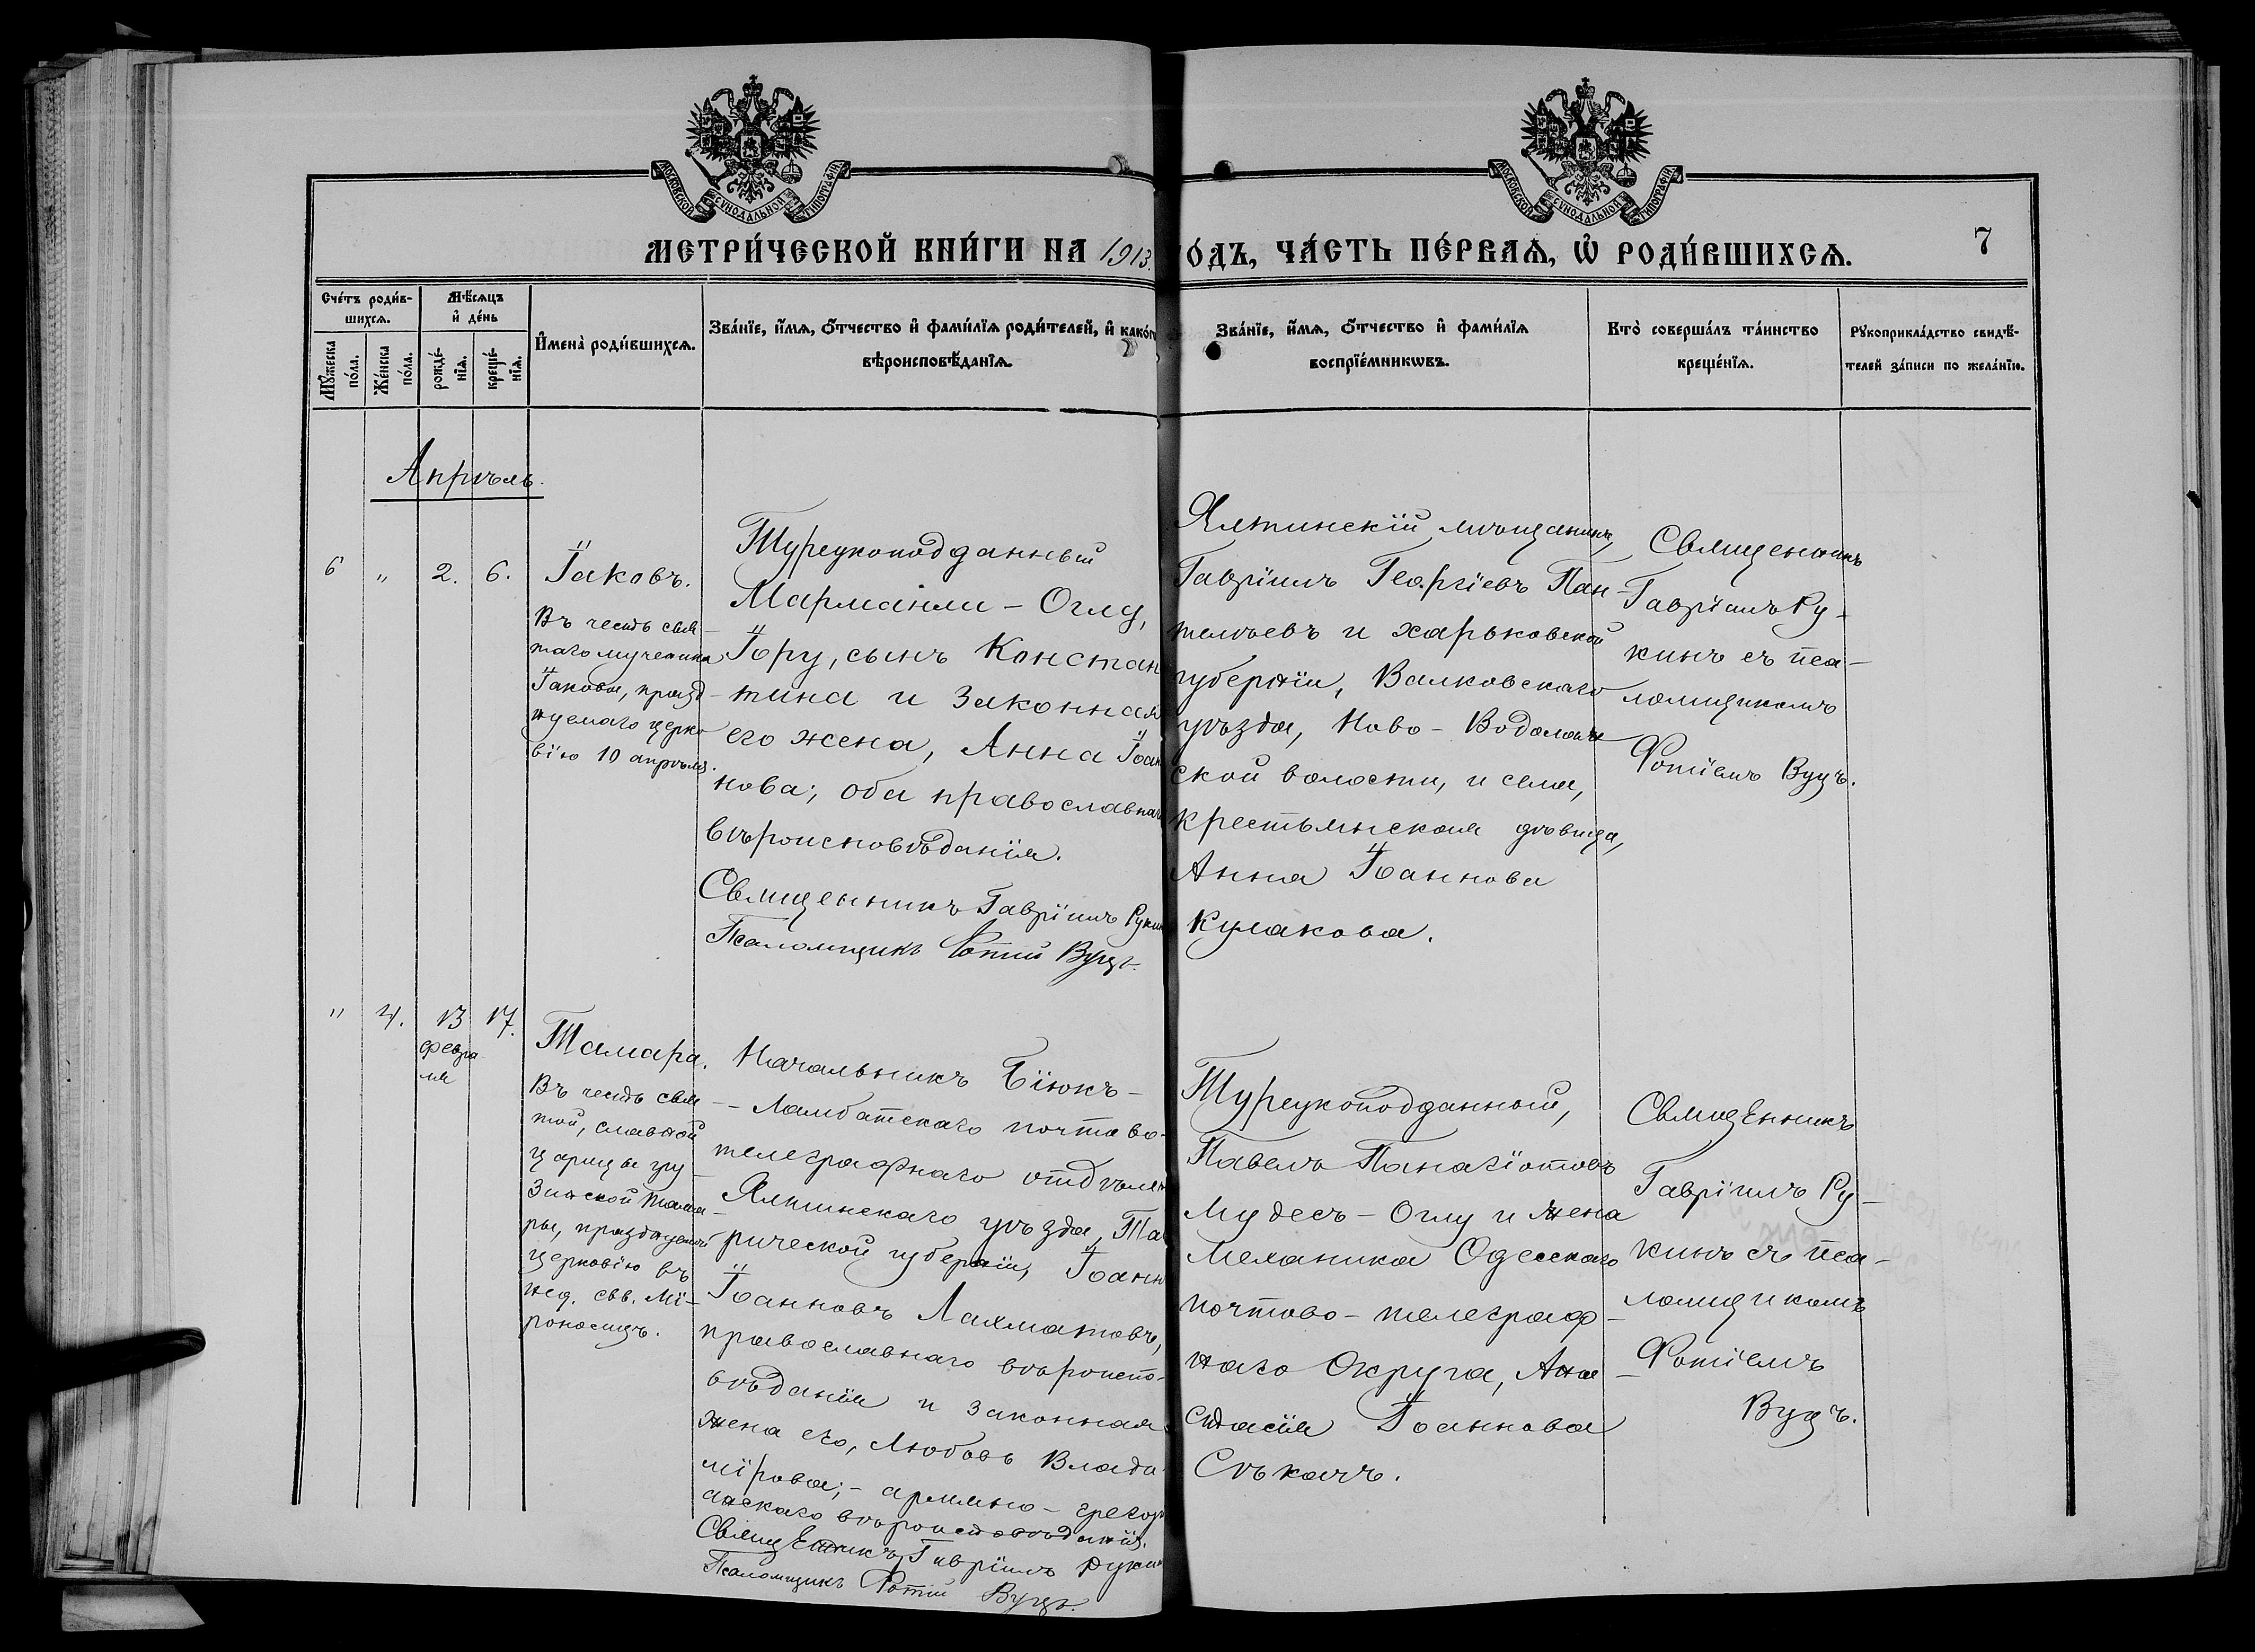 МОСКОВСКОЙ СѴНОДАЛЬНОЙ ТИПОГРАФІИ
МОСКОВСКОЙ СѴНОДАЛЬНОЙ ТИПОГРАФІИ
МЕТРИ́ЧЕСКОЙ КНИ́ГИ НА 1913.
О́ДЪ, ЧА́СТЬ ПЕ́РВАѦ, Ѡ РОДИ́ВШИХСѦ.
7
Сче́тъ роди́в-
шихсѧ.
Мѣ́сѧцъ
и҆ де́нь
Мꙋ́жеска
по́ла.
Же́нска
по́ла.
рожде́-
нїѧ.
креще́-
нїѧ.
И҆мена̀ роди́вшихсѧ.
Зва́нїе, и҆́мѧ, ѻ҆́тчество и҆ фами́лїѧ роди́телей, и҆ како́г
вѣроисповѣ́данїѧ.
Зва́нїе, и҆́мѧ, ѻ҆́тчество и҆ фами́лїѧ
воспрїе́мникѡвъ.
Кто̀ соверша́лъ та́инство
креще́нїѧ.
Рꙋкоприкла́дство свидѣ́-
телей за́писи по жела́нїю.
Апрѣль.
6 " 2. 6.
Іаковъ.
Въ честь свя-
таго мученика
Іакова, празд-
нуемаго церко
вію 10 апрѣля.
Турецкоподданный
Марманли-Оглу,
Іору, сынъ Констан
тина и законная
его жена, Анна Іоан
нова; оба православна
вѣроисповѣданія.
Священникъ Гавріилъ Руки
Псаломщикъ Фотій Вуцъ.
Ялтинскій мѣщанинъ,
Гавріилъ Георгіевъ Пан-
телѣевъ и харьковской
губерніи, Валковскаго
уѣзда, Ново-Водолаж
ской волости, и села,
крестьянская дѣвица,
Анна Іоаннова
Кулакова.
Священникъ
Гавріилъ Ру-
кинъ съ пса-
ломщикомъ
Фотіемъ Вуцъ.
" 4. 13 17.
февра
ля
Тамара.
Въ честь свя
той, славной
царицы гру-
зинской Тама-
ры, празднуемой
церковію въ
нед. свв. Мѵ-
роносицъ.
Начальникъ Біюкъ-
-Ламбатскаго почтово-
телеграфнаго отдѣлен
Ялтинскаго уѣзда, Та
рической губерніи, Іоанн
Іоанновъ Лахматовъ,
православнаго вѣроиспо-
вѣданія и законная
жена его, Любовь Влади-
мірова;- армяно-грегорі
анскаго вѣроисповѣданія.
Священникъ Гавріилъ Руки
Псаломщикъ Фотій Вуцъ.
Турецкоподданный,
Павелъ Панагіотовъ
Мудесъ-Оглу и жена
механика Одесскаго
почтово-телеграф-
наго Округа, Ана-
стасія Іоаннова
Сѣкачъ.
Священникъ
Гавріилъ Ру-
кинъ съ пса-
ломщикомъ
Фотіемъ
Вуцъ.